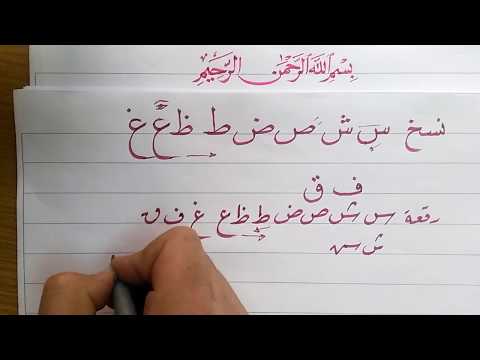 بسم الله الرحمن الرحيم
نسخ سِ ش صَ ض ط ظ عَّ غ
ف ق
رقعة س ش ص ض ط ظ ع غ ف ق
ش س